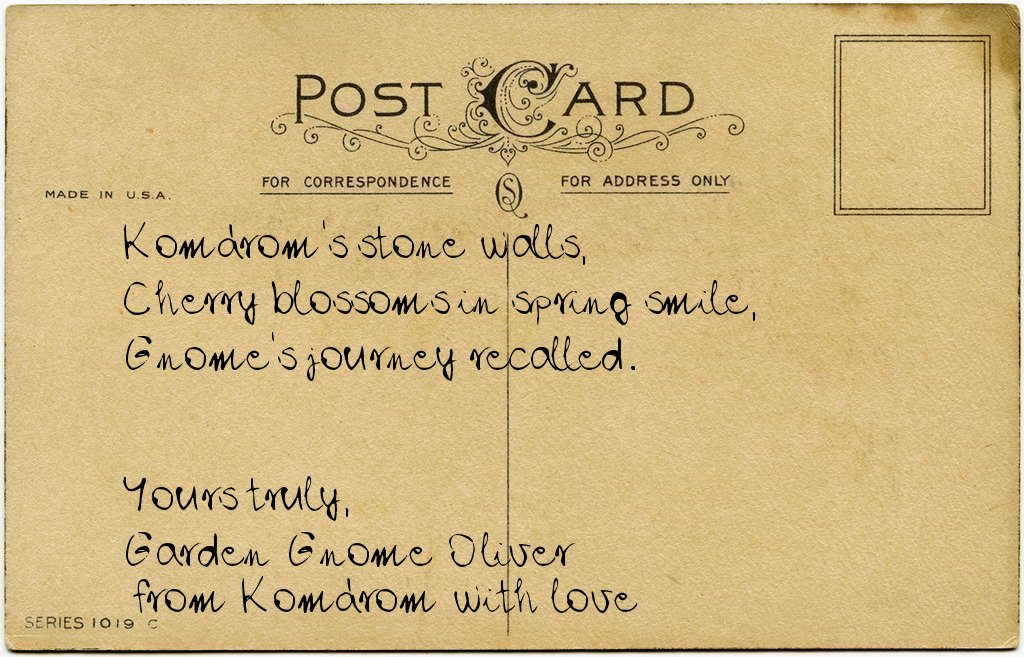 POST CARD
FOR CORRESPONDENCE
FOR ADDRESS ONLY
MADE IN U.S.A.
Komárom's stone walls,
Cherry blossoms in spring smile,
Gnome's journey recalled.
Yours truly,
Garden Gnome Oliver
from Komárom with love
SERIES 1019 C